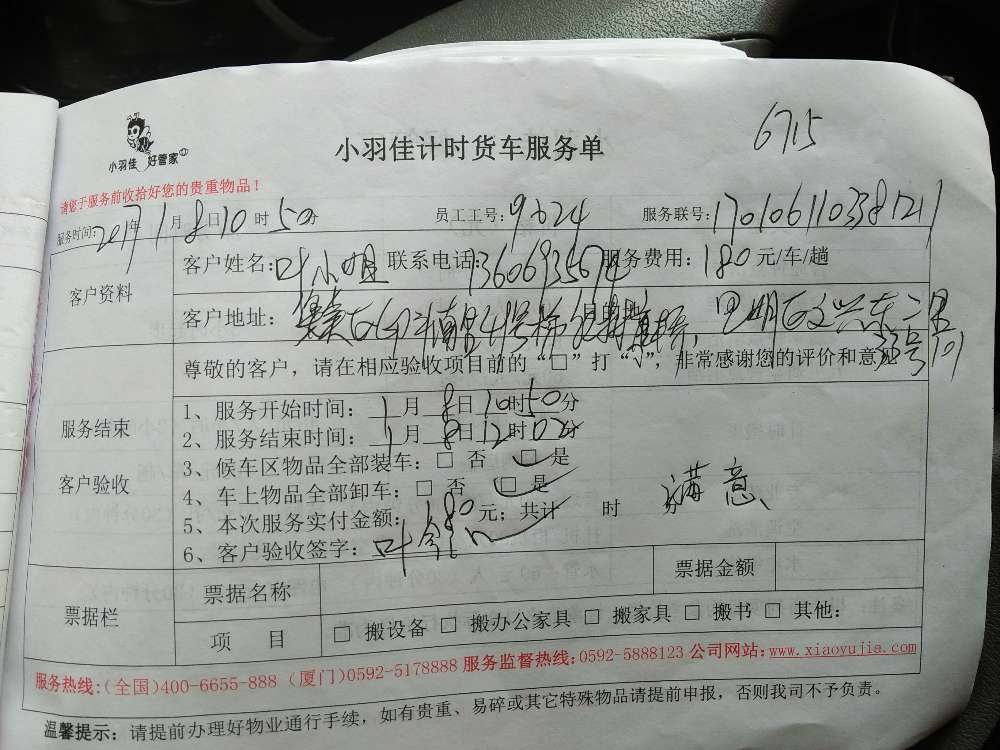 6715
小羽佳 好管家
小羽佳计时货车服务单
请您于服务前收拾好您的贵重物品！
服务时间: 2017年1月8日10时50分 员工工号: 9624 服务联号: 170106110338121
客户资料
客户姓名: 叶小姐 联系电话: 13606935674 服务费用: 180元/车/趟
客户地址:
尊敬的客户，请在相应验收项目前的“□”打“√”，非常感谢您的评价和意见
服务结束
客户验收
1、服务开始时间：1月8日10时50分
2、服务结束时间：1月8日12时02分
3、候车区物品全部装车：□ 否 □ 是
4、车上物品全部卸车：□ 否 □ 是
5、本次服务实付金额：180元；共计 时 满意
6、客户验收签字：叶
票据栏
票据名称 票据金额
项 目 □ 搬设备 □ 搬办公家具 □ 搬家具 □ 搬书 □ 其他:
服务热线:(全国)400-6655-888 (厦门)0592-5178888 服务监督热线:0592-5888123 公司网站:www.xiaoyujia.com
温馨提示：请提前办理好物业通行手续，如有贵重、易碎或其它特殊物品请提前申报，否则我司不予负责。